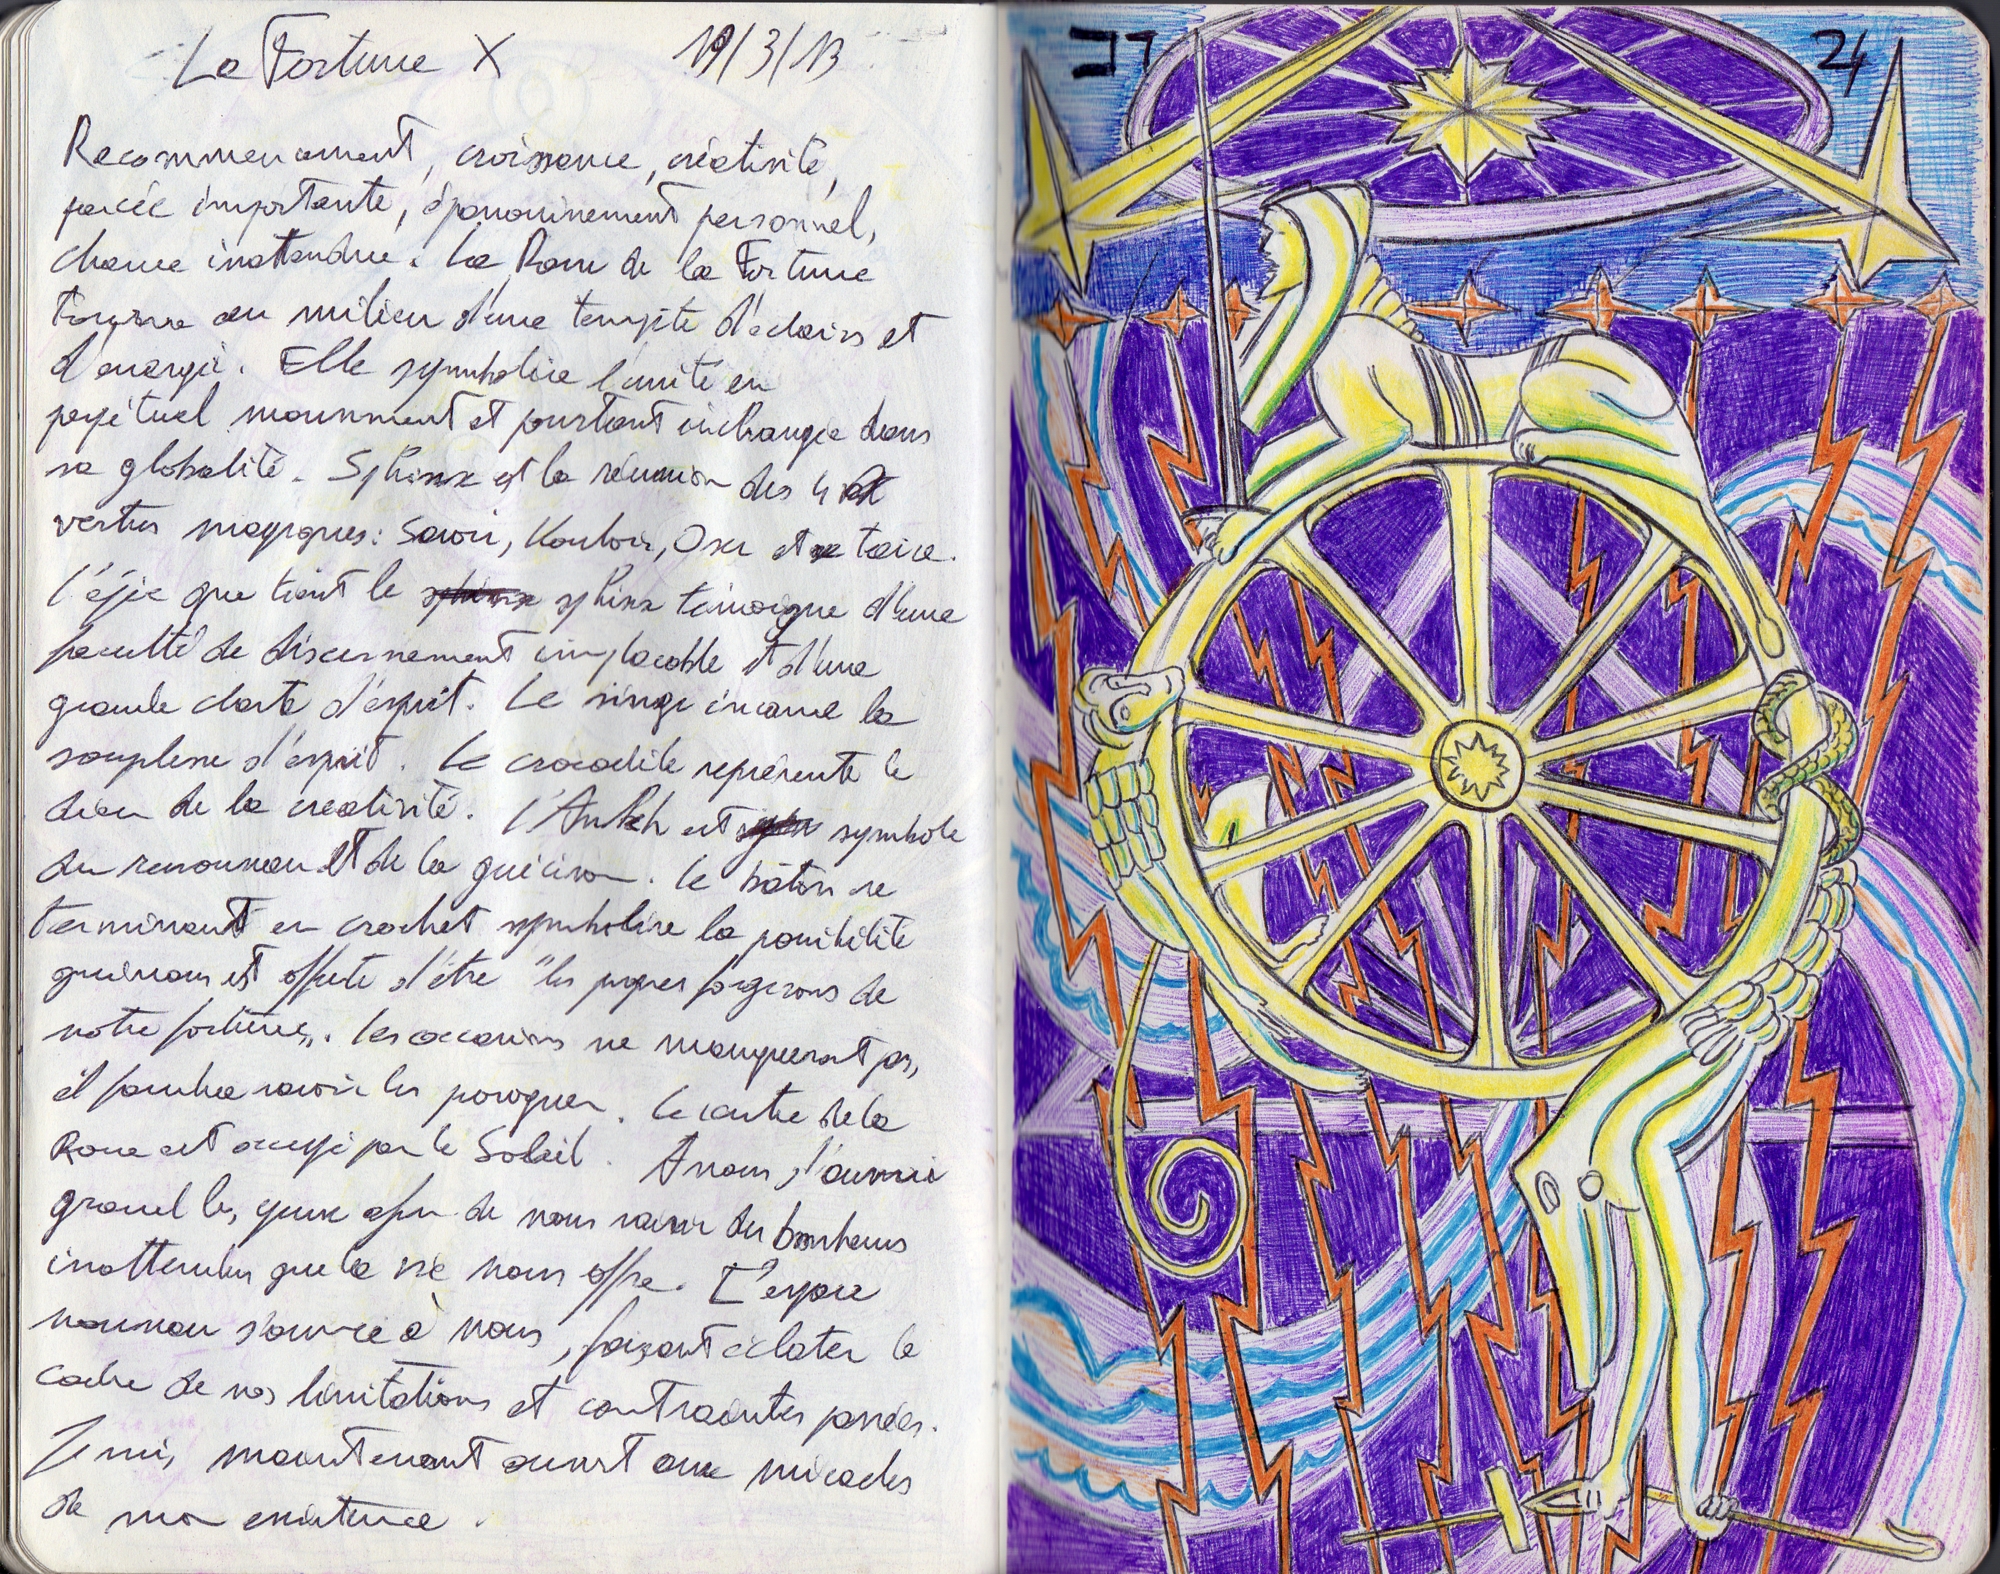 La Fortune X 19/3/13
Recommencement, croissance, créativité,
percée importante, épanouissement personnel,
chance inattendue. La Roue de la Fortune
tourne au milieu d'une tempête d'éclairs et
d'énergie. Elle symbolise l'unité en
perpétuel mouvement et pourtant inchangée dans
sa globalité. Sphinx est la réunion des 4
vertus magiques: Savoir, Vouloir, Oser et se taire.
L'épée que tient le sphinx témoigne d'une
faculté de discernement implacable et d'une
grande clarté d'esprit. Le singe incarne la
souplesse d'esprit. Le crocodile représente le
dieu de la créativité. L'Ankh est symbole
du renouveau et de la guérison. Le bâton se
terminant en crochet symbolise la possibilité
qui nous est offerte d'être "les propres forgerons de
notre fortune". Les occasions ne manqueront pas,
il faudra savoir les
Le centre de la
Roue est occupé par le Soleil. A nous d'ouvrir
grand les yeux afin de nous saisir des bonheurs
inattendus que la vie nous offre. L'espace
nouveau s'ouvre à nous, faisant éclater le
cadre de nos limitations et contraintes passées.
Je suis, maintenant ouvert aux miracles
de mon existence.
24